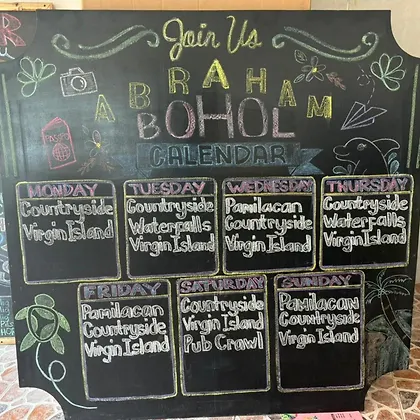 Join Us
ABRAHAM
BOHOL
CALENDAR
MONDAY
Countryside
Virgin Island
TUESDAY
Countryside
Waterfalls
Virgin Island
WEDNESDAY
Pamilacan
Countryside
Virgin Island
THURSDAY
Countryside
Waterfalls
Virgin Island
FRIDAY
Pamilacan
Countryside
Virgin Island
SATURDAY
Countryside
Virgin Island
Pub Crawl
SUNDAY
Pamilacan
Countryside
Virgin Island